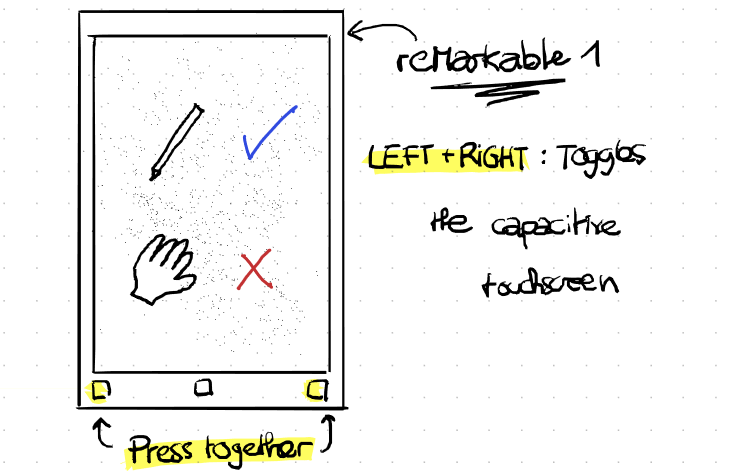 reMarkable 1
LEFT + RIGHT : Toggles
the capacitive
touchscreen
Press together